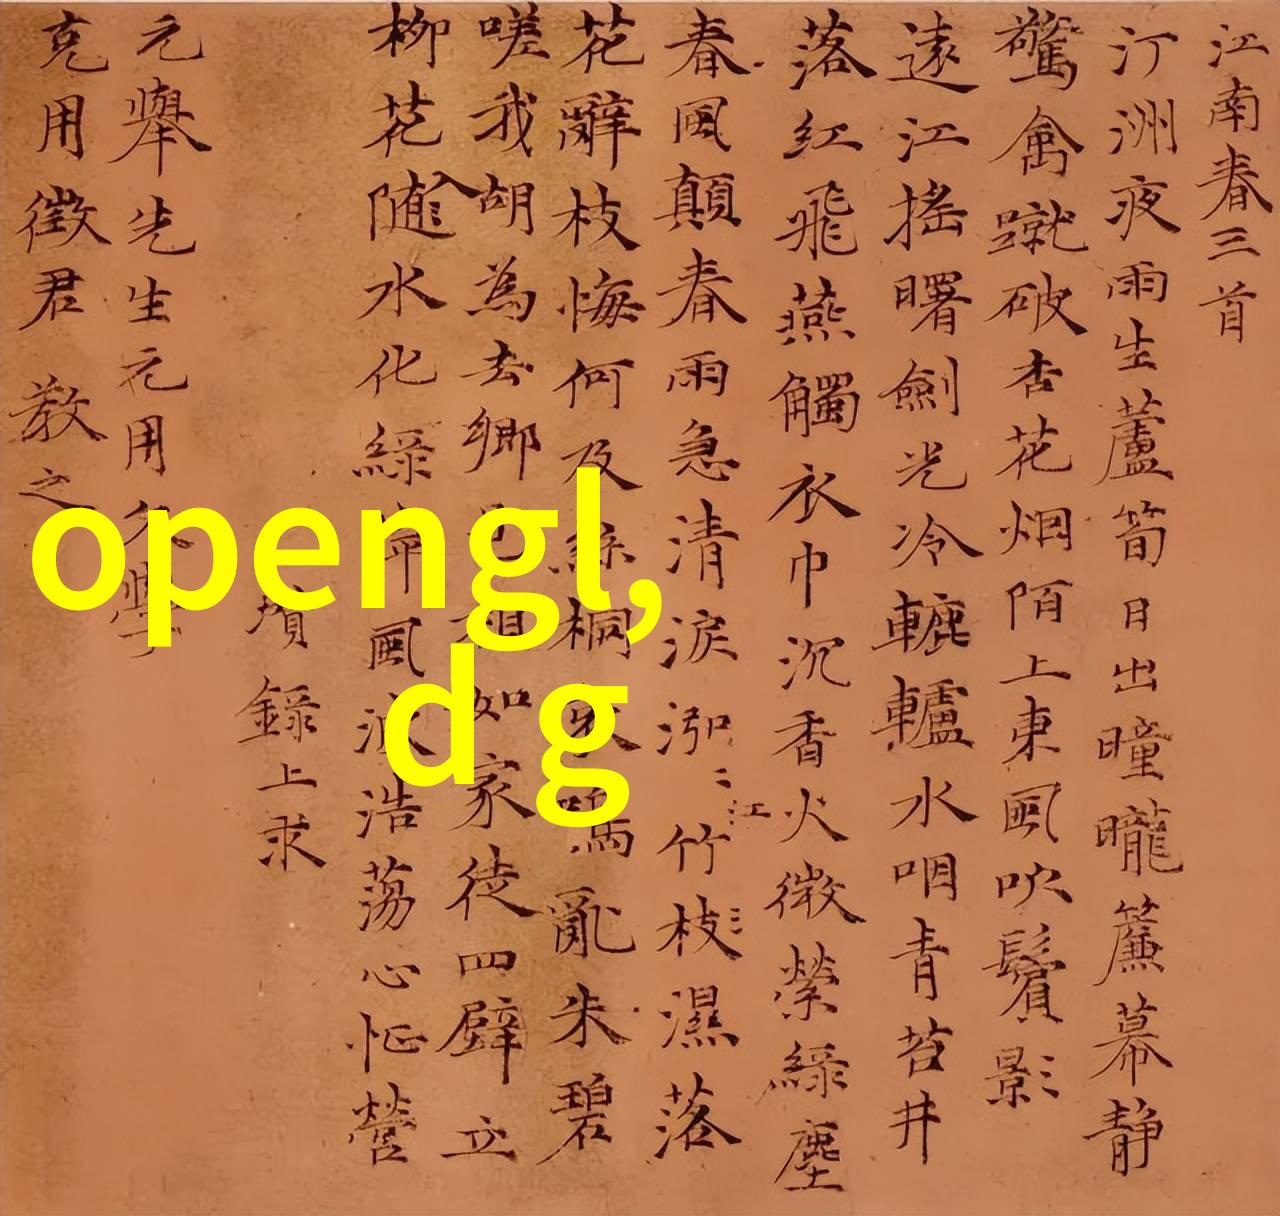 江南春三首
汀洲夜雨生蘆筍日出曈曨簾幕静
驚禽蹴破杏花烟陌上東風吹鬢影
遠江搖曙劍光冷轆轤水咽青苔井
落紅飛燕觸衣巾沉香火微縈綠塵
春風顛春雨急清淚泓泓江竹枝濕落
花辭枝悔何及絲桐哀鳴亂朱碧
嗟我胡為去鄉邑相如家徒四壁立
柳花随入水化綠萍風波浩蕩心怔營
瓚錄上求
元舉先生元用文學
克用徵君 教之
opengl,
d g